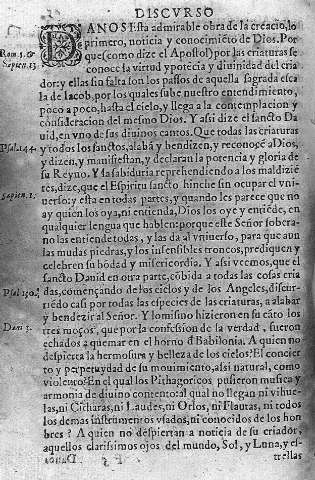 DISCVRSO
DANOS Esta admirable obra de la creacio, lo
primero, noticia y conocimiẽto de Dios. Por
Rom. 1. &
que (como dize el Apostol) por las criaturas se
Sapien. 13.
conoce la virtud y potẽcia y diuinidad del cria
dor: y ellas sin falta son los passos de aquella sagrada esca
la de Iacob, por los quales sube nuestro entendimiento,
poco a poco, hasta el cielo, y llega a la contemplacion y
consideracion del mesmo Dios. Y assi dize el sancto Da
uid, en vno de sus diuinos cantos. Que todas las criaturas
Psal. 144.
y todos los sanctos, alabã y bendizen, y reconocẽ a Dios,
y dizen, y manifiestan, y declaran la potencia y gloria de
su Reyno. Y la sabiduria reprehendiendo a los maldiziẽ
tes, dize, que el Espiritu sancto hinche sin ocupar el vni-
Sapien. 1.
uerso; y esta en todas partes, y quando les parece que no
ay quien los oya, ni entienda, Dios los oye y entiẽde, en
qualquier lengua que hablen: porque este Señor sobera-
no las entiende todas, y las da al vniuerso, para que aun
las mudas piedras, y los insensibles troncos, prediquen y
celebren su bõdad y misericordia. Y assi veemos, que el
sancto Dauid en otra parte, cõbida a todas las cosas cria
Psal. 150.
das, començando de los cielos y de los Angeles, discur-
riẽdo casi por todas las especies de las criaturas, a alabar
y bendezir al Señor. Y lo mismo hizieron en su cãto los
Dani 3.
tres moços, que por la confession de la verdad, fueron
echados a quemar en el horno de Babilonia. A quien no
despierta la hermosura y belleza de los cielos? El concier
to y perpetuydad de su mouimiento, assi natural, como
violento? En el qual los Pithagoricos pusieron musica y
armonia de diuino contento: al qual no llegan ni vihue-
las, ni Citharas, ni Laudes, ni Orlos, ni Flautas, ni todos
los demas instrumentos vsados, ni conocidos de los hon
bres? A quien no despiertan a noticia de su criador,
aquellos clarissimos ojos del mundo, Sol, y Luna, y es-
trellas